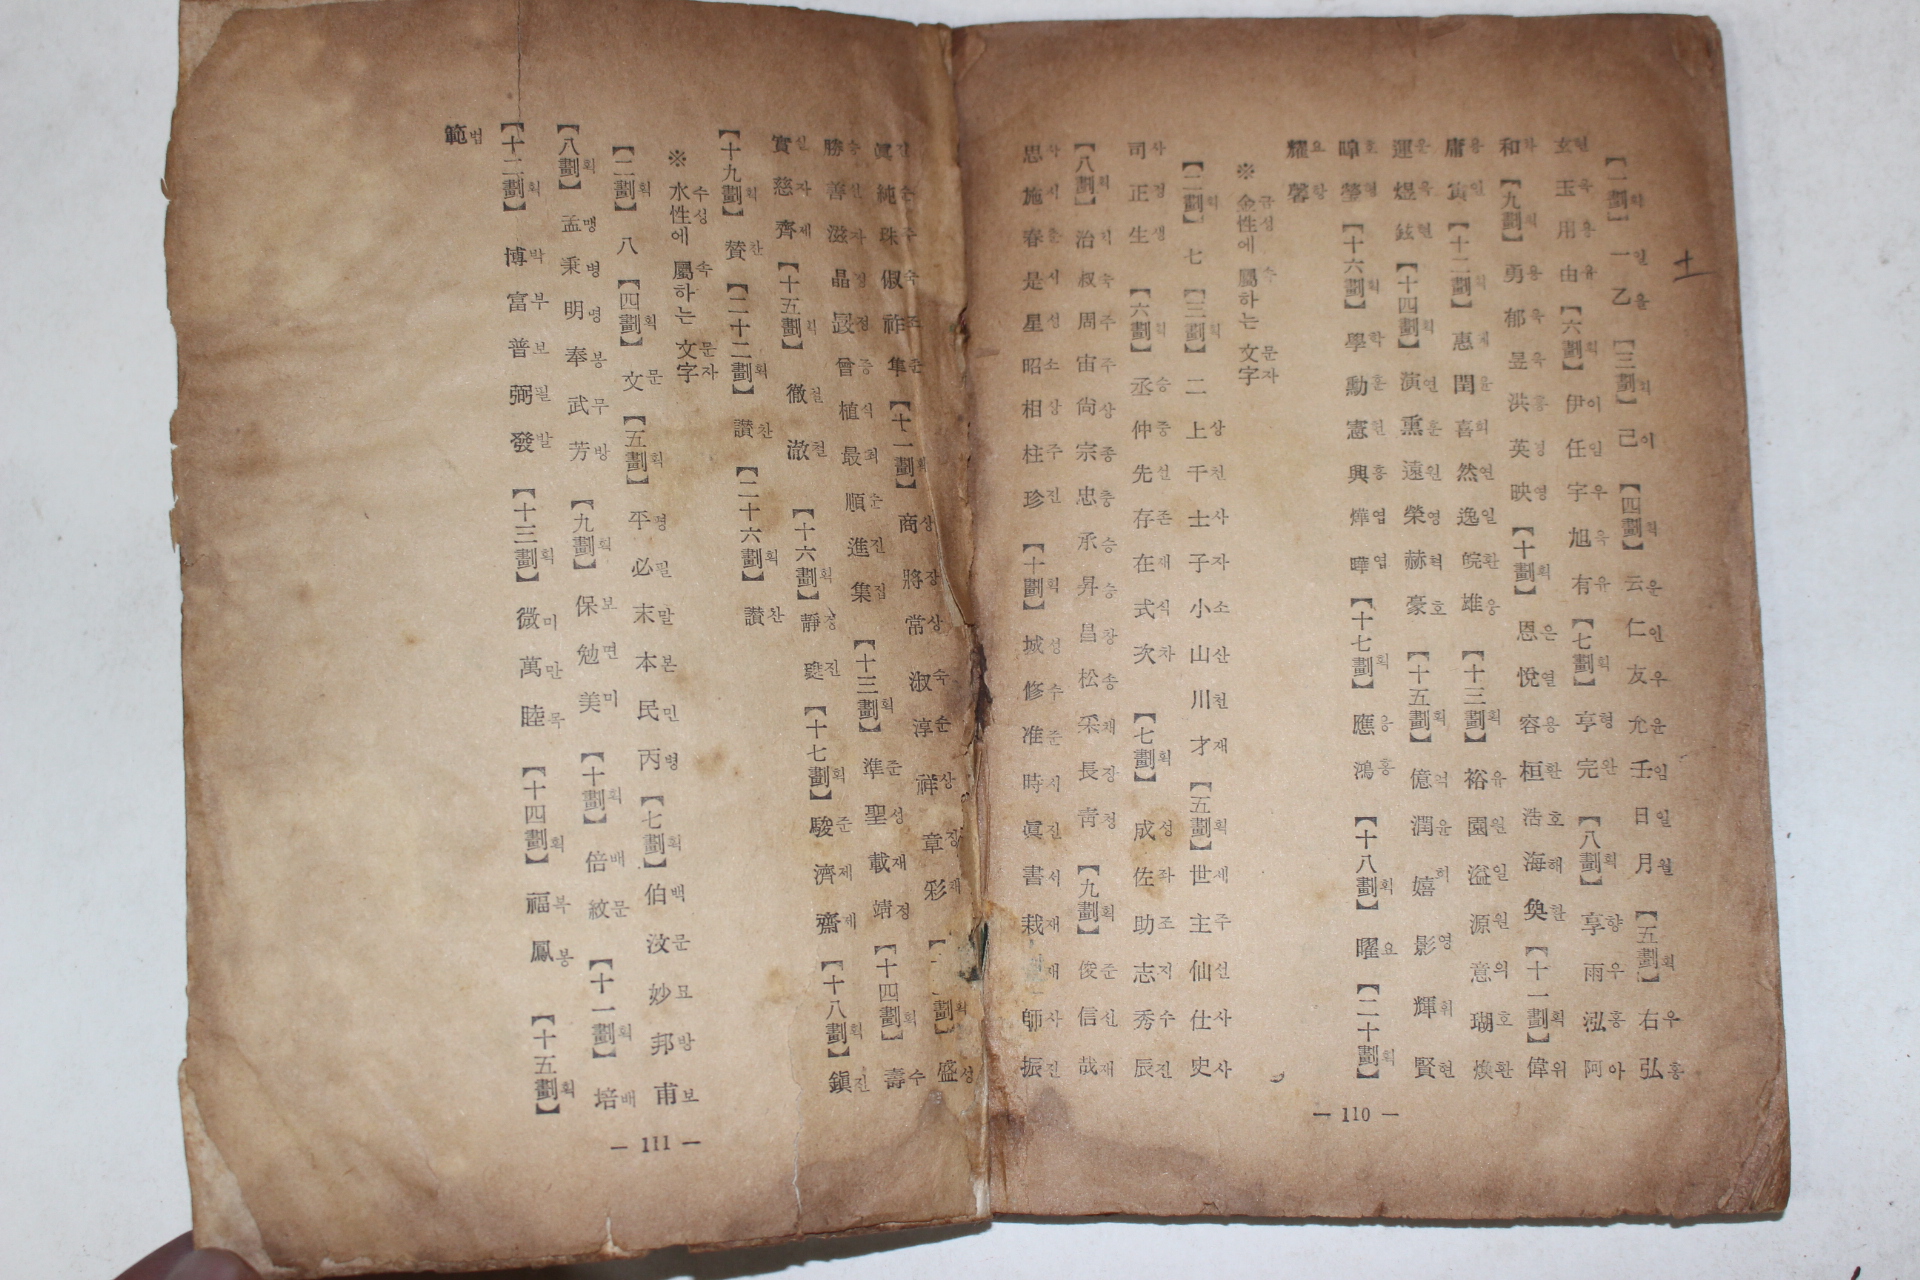 土
【一劃획】 一일 乙을 【三劃획】 己이 【四劃획】 云운 仁인 友우 允윤 壬임 日일 月월 【五劃획】 右우 弘홍
玄현 玉옥 用용 由유 【六劃획】 伊이 任임 宇우 旭욱 有유 【七劃획】 亨형 完완 【八劃획】 享향 雨우 泓홍 阿아
和화 【九劃획】 勇용 郁욱 昱욱 洪홍 英영 映영 【十劃획】 恩은 悅열 容용 桓환 浩호 海해 奐환 【十一劃획】 偉위
庸용 寅인 【十二劃획】 惠혜 閏윤 喜희 然연 逸일 皖환 雄웅 【十三劃획】 裕유 園원 溢일 源원 意의 瑚호 煥환
運운 煜욱 鉉현 【十四劃획】 演연 熏훈 遠원 榮영 赫혁 豪호 【十五劃획】 億억 潤윤 嬉희 影영 輝휘 賢현
暭호 瑩형 【十六劃획】 學학 勳훈 憲헌 興흥 燁엽 曄엽 【十七劃획】 應응 鴻홍 【十八劃획】 曜요 【二十劃획】
耀요 馨향
※ 金금性성에 屬속하는 文문字자
【二劃획】 七 【三劃획】 二 上상 千천 士사 子자 小소 山산 川천 才재 【五劃획】 世세 主주 仙선 仕사 史사
司사 正정 生생 【六劃획】 丞승 仲중 先선 存존 在재 式식 次차 【七劃획】 成성 佐좌 助조 志지 秀수 辰진
【八劃획】 治치 叔숙 周주 宙주 尙상 宗종 忠충 承승 昇승 昌창 松송 采채 長장 靑청 【九劃획】 俊준 信신 哉재
思사 施시 春춘 是시 星성 昭소 相상 柱주 珍진 【十劃획】 城성 修수 准준 時시 眞진 書서 栽재 재 師사 振진
— 110 —
眞진 純순 珠주 俶숙 祚조 隼준 【十一劃획】 商상 將장 常상 淑숙 淳순 祥상 章장 彩채 劃획】 盛성
勝승 善선 滋자 晶정 晸정 曾증 植식 最최 順순 進진 集집 【十三劃획】 準준 聖성 載재 靖정 【十四劃획】 壽수
實실 慈자 齊제 【十五劃획】 徹철 澈철 【十六劃획】 靜정 진 【十七劃획】 駿준 濟제 齋제 【十八劃획】 鎭진
【十九劃획】 贊찬 【二十二劃획】 讃찬 【二十六劃획】 讚찬
※ 水수性성에 屬속하는 文문字자
【二劃획】 八 【四劃획】 文문 【五劃획】 平평 必필 末말 本본 民민 丙병 【七劃획】 伯백 汶문 妙묘 邦방 甫보
【八劃획】 孟맹 秉병 明명 奉봉 武무 芳방 【九劃획】 保보 勉면 美미 【十劃획】 倍배 紋문 【十一劃획】 培배
【十二劃획】 博박 富부 普보 弼필 發발 【十三劃획】 微미 萬만 睦목 【十四劃획】 福복 鳳봉 【十五劃획】
範범
— 111 —